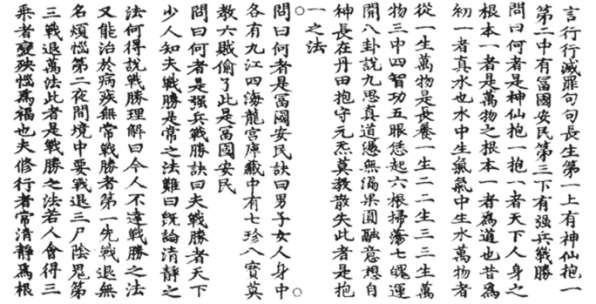 言行行滅罪句句長生第一上有神仙抱一
第二中有富國安民第三下有强兵戰勝
問曰何者是神仙抱一抱一者天下人身之
根本一者是萬物之根本一者爲道也昔爲
初一者真水也水中生氣氣中生水萬物者
從一生萬物是長養一生二二生三三生萬
物三中四智功五眼恁起六根掃蕩七魄運
開八卦說九思真道德無漏果圓融意想自
神長在丹田抱守元炁莫教散失此者是抱
一之法
問曰何者是富國安民訣曰男子女人身中
各有九江四海龍宫庫藏中有七珍八寶莫
教六賊偷了此是富國安民
問曰何者是强兵戰勝訣曰夫戰勝者天下
少人知夫戰勝是常之法難曰旣論清靜之
法何得說戰勝理解曰今人不達戰勝之法
又能治於病疾無常戰勝者第一先戰退無
名煩惱第二夜間境中要戰退三尸陰鬼第
三戰退萬法此者是戰勝之法若人會得三
乘者變殃惱爲福也夫修行者常清靜爲根